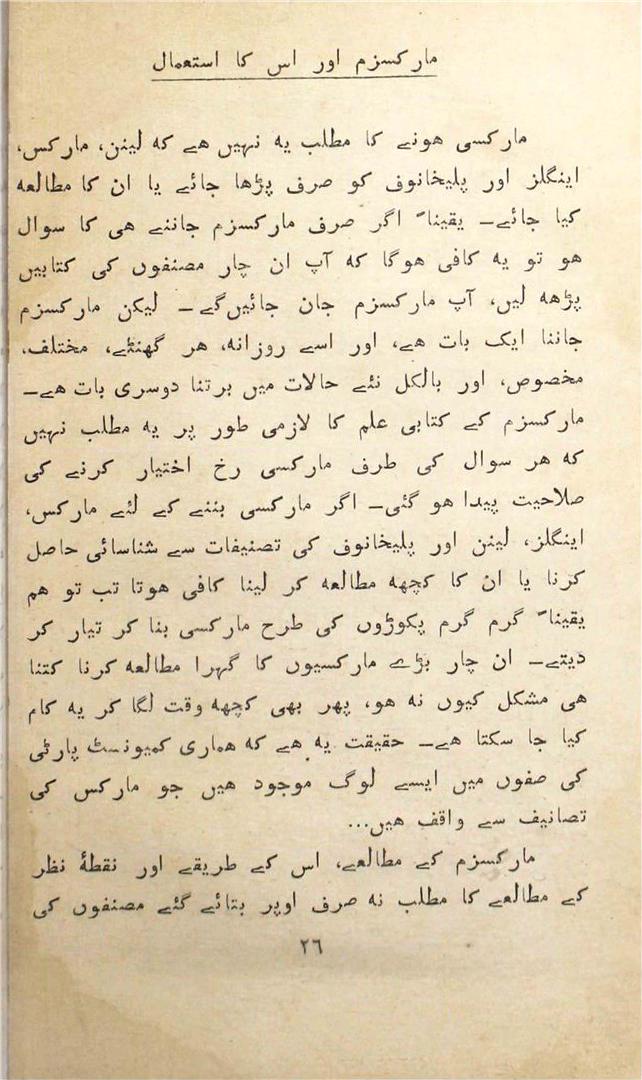 مارکسزم اور اس کا استعمال
مارکسی ہونے کا مطلب یہ نہیں ہے کہ لینن، مارکس،
اینگلز اور پلیخانوف کو صرف پڑھا جائے یا ان کا مطالعہ
کیا جائے۔ یقیناً اگر صرف مارکسزم جاننے ہی کا سوال
ہو تو یہ کافی ہوگا کہ آپ ان چار مصنفوں کی کتابیں
پڑھہ لیں، آپ مارکسزم جان جائیں گے۔ لیکن مارکسزم
جاننا ایک بات ہے، اور اسے روزانہ، ہر گھنٹے، مختلف،
مخصوص، اور بالکل نئے حالات میں برتنا دوسری بات ہے۔
مارکسزم کے کتابی علم کا لازمی طور پر یہ مطلب نہیں
کہ ہر سوال کی طرف مارکسی رخ اختیار کرنے کی
صلاحیت پیدا ہو گئی۔ اگر مارکسی بننے کے لئے مارکس،
اینگلز، لینن اور پلیخانوف کی تصنیفات سے شناسائی حاصل
کرنا یا ان کا کچھہ مطالعہ کر لینا کافی ہوتا تب تو ہم
یقیناً گرم گرم پکوڑوں کی طرح مارکسی بنا کر تیار کر
دیتے۔ ان چار بڑے مارکسیوں کا گہرا مطالعہ کرنا کتنا
ہی مشکل کیوں نہ ہو، پھر بھی کچھہ وقت لگا کر یہ کام
کیا جا سکتا ہے۔ حقیقت یہ ہے کہ ہماری کمیونسٹ پارٹی
کی صفوں میں ایسے لوگ موجود ہیں جو مارکس کی
تصانیف سے واقف ہیں...
مارکسزم کے مطالعے، اس کے طریقے اور نقطۂ نظر
کے مطالعے کا مطلب نہ صرف اوپر بتائے گئے مصنفوں کی
٢٦